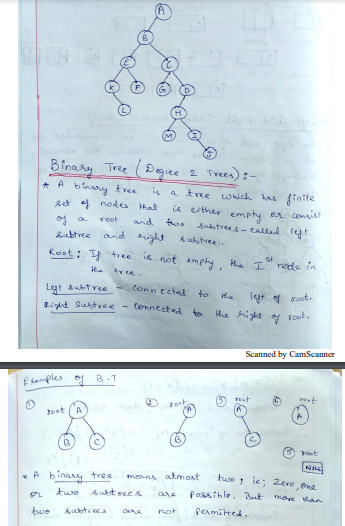 A
B
E C
K F G D
L H
M I
J
Binary Tree (Degree 2 Trees) :-
* A binary tree is a tree which has finite
set of nodes that is either empty or consist
of a root and two subtrees - called left
subtree and right subtree.
Root : If tree is not empty, the Ist node in
the tree.
Left subtree - connected to the left of root.
Right Subtree - connected to the right of root.
Scanned by CamScanner
Examples of B.T
① ② ③ ④
root A root A root A root A
B C B C
⑤ root
NULL
* A binary tree means atmost two; ie; zero, one
or two subtrees are possible. But more than
two subtrees are not permitted.